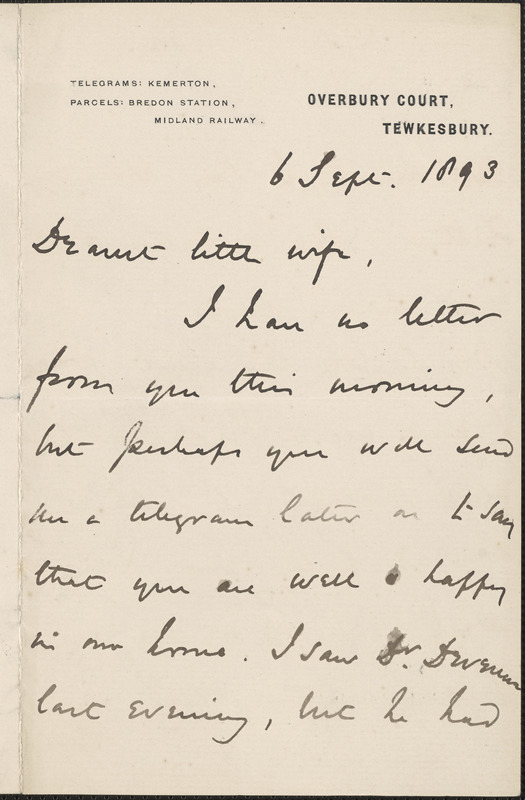 TELEGRAMS: KEMERTON,
PARCELS: BREDON STATION,
MIDLAND RAILWAY.
OVERBURY COURT,
TEWKESBURY.
6 Sept. 1893
Dearest little wife,
I have no letter
from you this morning,
but perhaps you will send
me a telegram later on to say
that you are well & happy
in our home. I saw Dr.
last evening, but he had